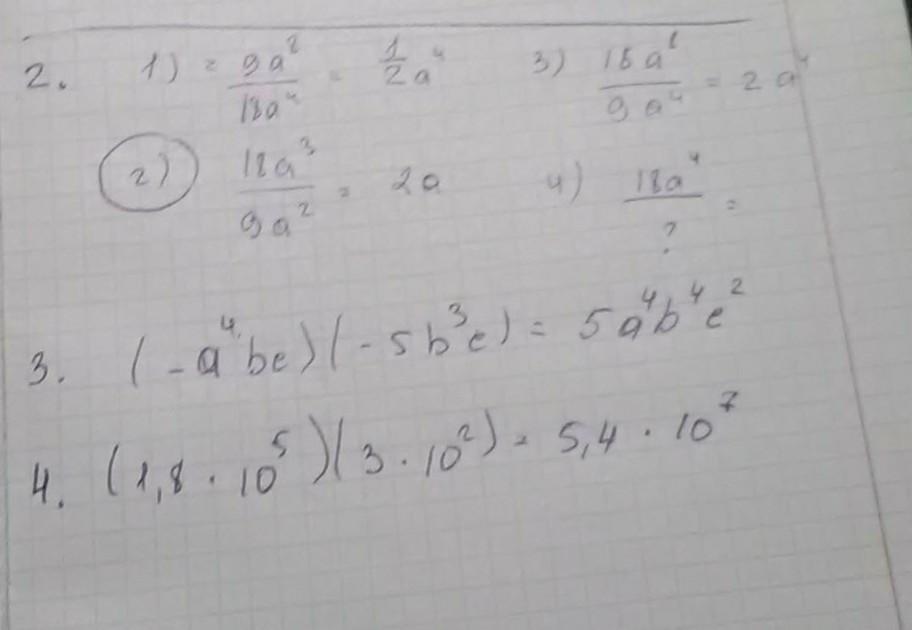 2. 1) = 9a⁸/18a⁴ = 1/2 a⁴ 3) 18a⁸/9a⁴ = 2a⁴
2) 18a³/9a² = 2a 4) 18a⁴/? =
3. (-a⁴bc)(-5b³c) = 5a⁴b⁴c²
4. (1,8 · 10⁵)(3 · 10²) = 5,4 · 10⁷